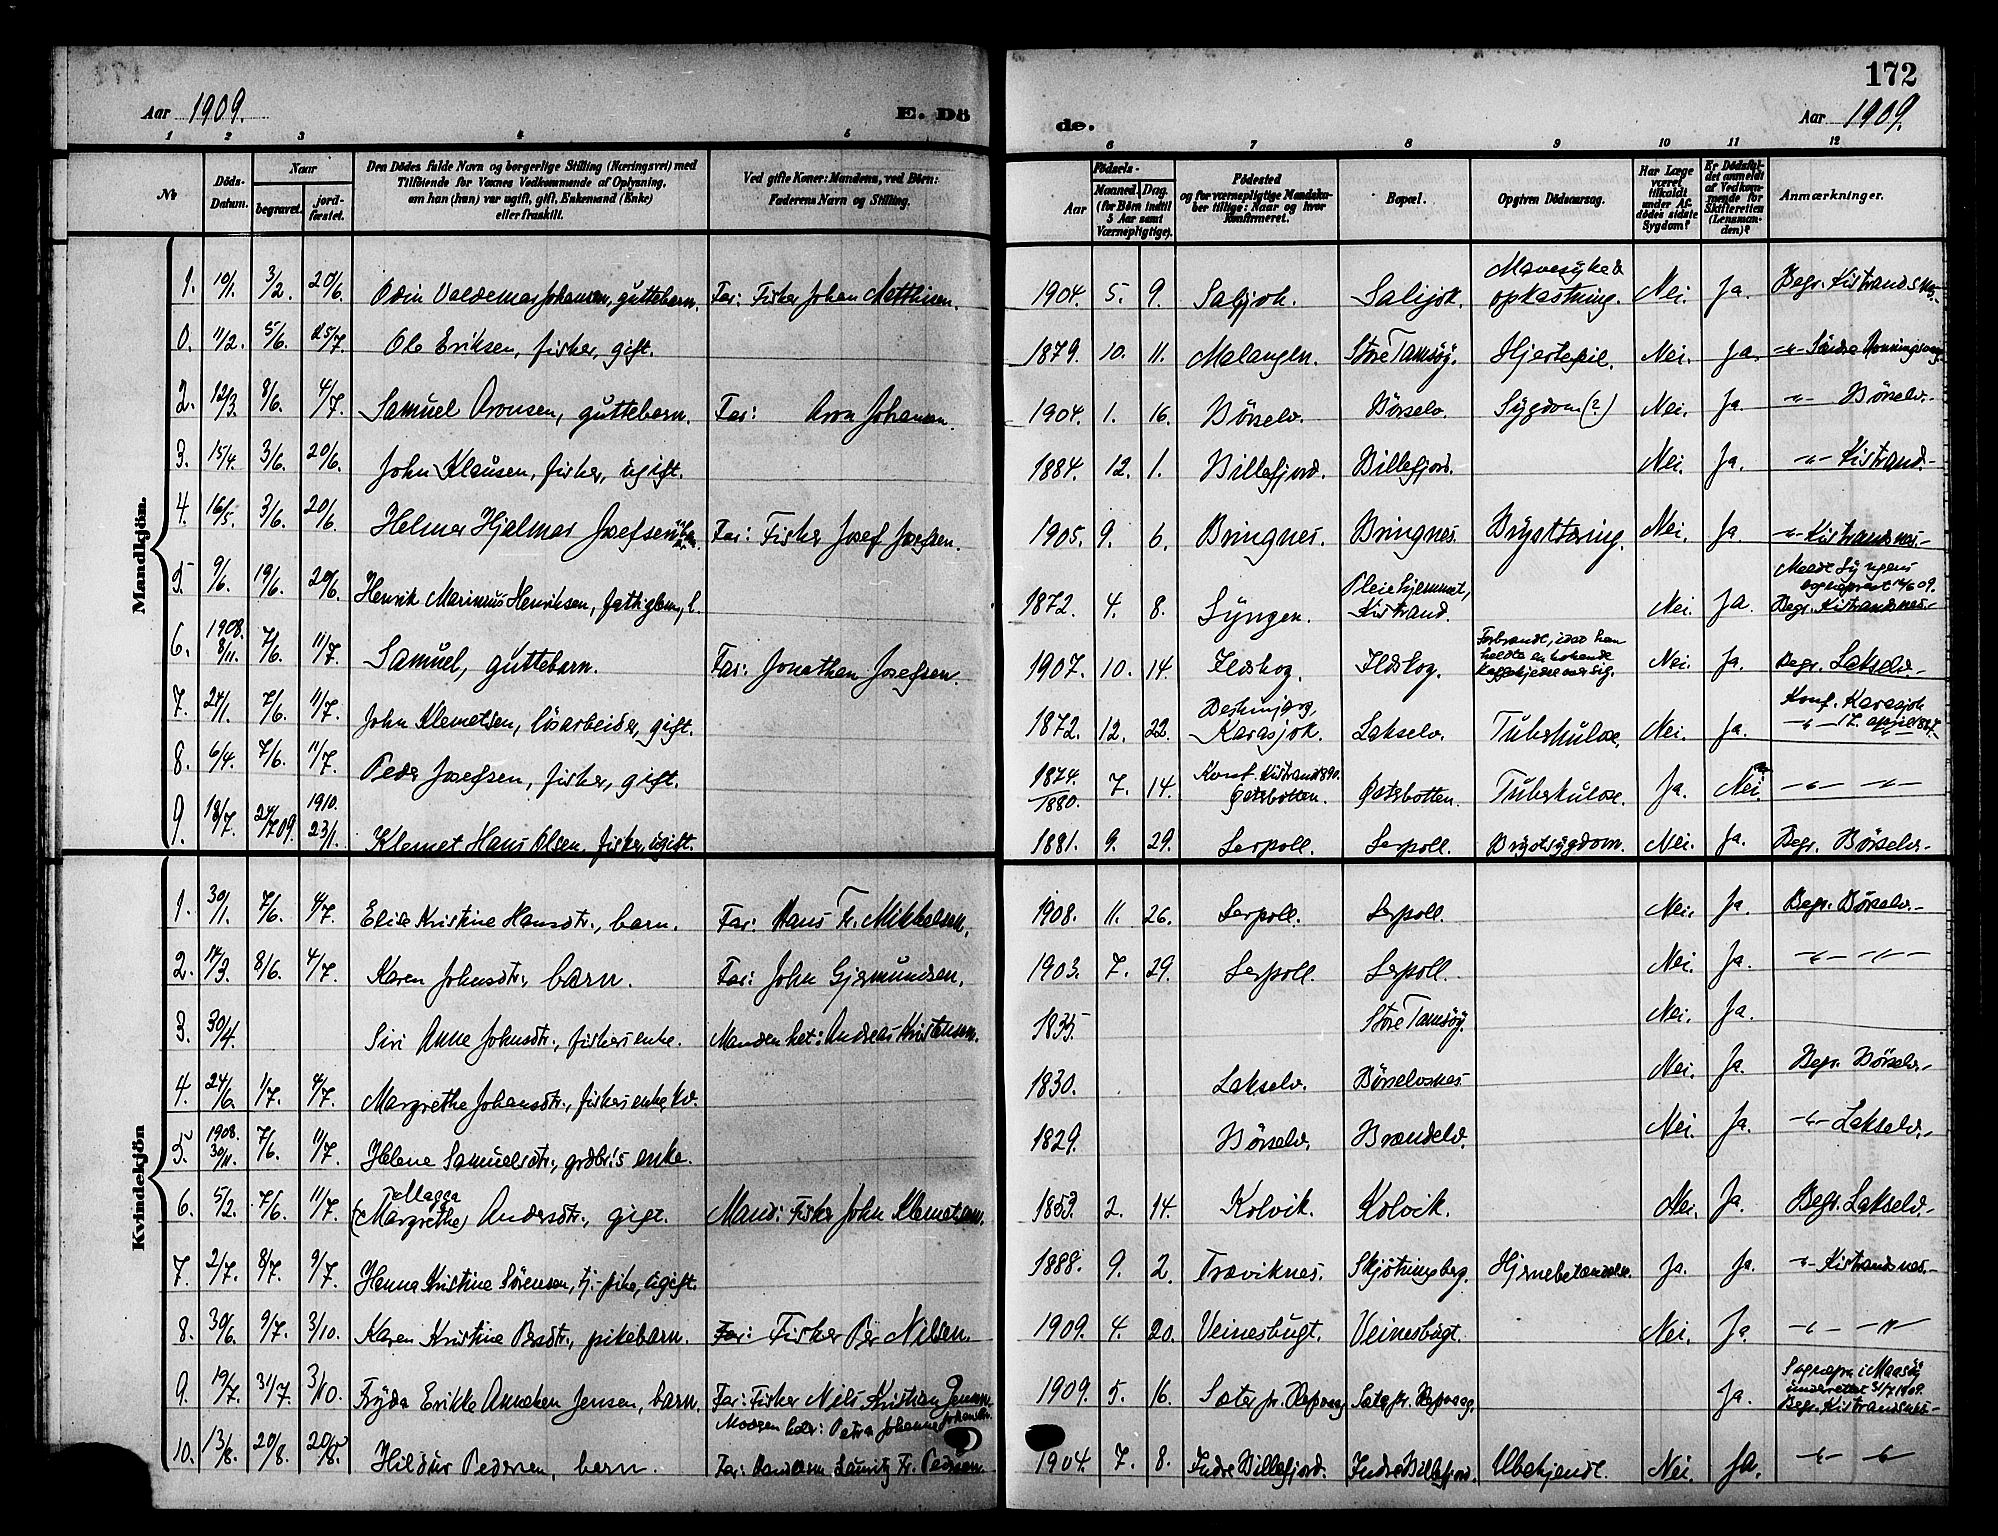 172
Aar 1909. E. Dö de. Aar 1909.
1 2 3 4 5 6 7 8 9 10 11 12
No
Döds-Datum.
Naar
begravet.
jord-fæstet.
Den Dödes fulde Navn og borgerlige Stilling (Næringsvei) med
Tilföiende for Voxnes Vedkommende af Oplysning,
om han (hun) var ugift, gift, Enkemand (Enke)
eller fraskilt.
Ved gifte Koner: Mandens, ved Börn:
Faderens Navn og Stilling.
Födsels-
Aar
Maaned. Dag.
(for Börn indtil
5 Aar samt
Værnepligtige).
Födested
og for værnepligtige Mandska-
ber tillige: Naar og hvor
Konfirmeret.
Bopæl.
Opgiven Dödsaarsag.
Har Læge
været
tilkaldt
under Af-
dödes sidste
Sygdom?
Er Dödsfal-
det anmeldt
af Vedkom-
mende for
Skifteretten
(Lensman-
den)?
Anmærkninger.
Mandkjön.
1. 10/1. 3/2. 20/6. Odin Valdemar Johansen, guttebarn. Far: Fisker Johan Matthisen. 1904. 5. 9. Saljok. Salijok. Mavesyke & opkastning. Nei. Ja. Begr. Kistrandsnes.
0. 11/2. 5/6. 25/7. Ole Eriksen, fisker, gift. 1879. 10. 11. Malangen. Store Tamsøy. Hjertefeil. Nei. Ja. -"- Søndre Honningsvaag.
2. 12/3. 8/6. 4/7. Samuel Aronsen, guttebarn. Far: Aron Johansen. 1904. 1. 16. Børselv. Børselv. Sygdom (?) Nei. Ja. -"- Børselv.
3. 15/4. 3/6. 20/6. John Klausen, fisker, ugift. 1884. 12. 1. Billefjord. Billefjord. Nei. Ja. -"- Kistrand.
4. 16/5. 3/6. 20/6. Helmer Hjalmar Josefsen Far: Fisker Josef Josefsen. 1905. 9. 6. Bringnes. Bringnes. Brysttæring. Nei. Ja. -"- Kistrandsnes.
5. 9/6. 19/6. 20/6. Henrik Marinius Henriksen, fattiglem, 1872. 4. 8. Lyngen. Pleiehjemmet, Kistrand. Nei. Ja. Meldt Lyngens 09. Begr. Kistrandsnes.
6. 1908. 8/11. 7/6. 11/7. Samuel, guttebarn. Far: Jonathan Josefsen. 1907. 10. 14. Ildskog. Ildskog. Forbrændt, idet han heldte en kokende Kaffekjedel over sig. Nei. Ja. Begr. Lakselv.
7. 24/1. 7/6. 11/7. John Klemetsen, løsarbeider, gift. 1872. 12. 22. Karasjok. Lakselv. Tuberkulose. Nei. Ja. Konf. Karasjok -"- 17. april 1887.
8. 6/4. 7/6. 11/7. Peder Josefsen, fisker, gift. 1874. /1880. 7. 14. Konf. Kistrand 1890. Østerbotten. Østerbotten. Tuberkulose. Ja. Nei. -"- -"-
9. 18/7. 24/7 09. 1910. 23/1. Klemet Hans Olsen, fisker, ugift. 1881. 9. 29. Lerpoll. Lerpoll. Brystsygdom. Nei. Ja. Begr. Børselv.
Kvindekjön
1. 30/1. 7/6. 4/7. Elise Kristine Hansdtr., barn. Far: Hans Fr. Mikkelsen. 1908. 11. 26. Lerpoll. Lerpoll. Nei. Ja. Begr. Børselv.
2. 14/3. 8/6. 4/7. Karen Johnsdtr., barn. Far: John Gjermundsen. 1903. 7. 29. Lerpoll. Lerpoll. Nei. Ja. -"- -"-
3. 30/4. Siri Anne Johnsdtr., fiskers enke. Manden het: Andreas Kristensen. 1835. Store Tamsøy. Nei. Ja.
4. 24/6. 1/7. 4/7. Margrethe Johansdtr., fiskers enke, kv. 1830. Lakselv. Børselvnes Nei. Ja. Begr. Børselv.
5. 1908. 30/11. 7/6. 11/7. Helene Samuelsdtr., grdbr.s enke. 1829. Børselv. Brændelv. Nei. Ja. -"- Lakselv.
6. 5/2. 7/6. 11/7. Magga (Margrethe) Andersdtr., gift. Mand: Fisker John Klemetsen. 1853. 2. 14. Kolvik. Kolvik. Nei. Ja. Begr. Lakselv.
7. 2/7. 8/7. 9/7. Hanna Kristine Sørensen, tj. pike, ugift. 1888. 9. 2. Træviknes. Skjøtningberg. Hjernebetændelse. Ja. Ja. -"- Kistrandsnes.
8. 30/6. 9/7. 3/10. Karen Kristine Persdtr., pikebarn. Far: Fisker Per Nilsen. 1909. 4. 20. Veinesbugt. Veinesbugt. Nei. Ja. -"- -"-
9. 19/7. 31/7. 3/10. Fryda Erikke Anneken Jensen, barn. Far: Fisker Nils Kristian Jensen. Moren heter: Petra Johanne Johansdtr. 1909. 5. 16. Sæter pr. Repvaag Sæter pr. Repvaag. Ja. Sognepr. i Maasø underrettet 31/7 1909. Begr. Kistrandsnes
10. 13/8. 20/8. 20/8. Hildur Pedersen, barn. Far: Handelsm. Lauritz Fr. Pedersen. 1904. 7. 8. Indre Billefjord. Indre Billefjord. Ubekjendt. Nei. Ja. -"- -"-